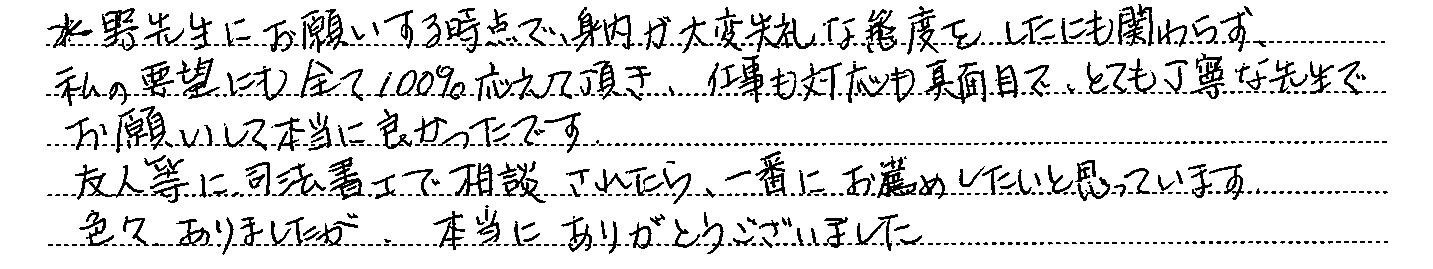 水野先生にお願いする時点で、身内が大変失礼な態度をしたにも関わらず、
私の要望にも全て100%応えて頂き、仕事も対応も真面目で、とても丁寧な先生で
お願いして本当に良かったです。
友人等に司法書士で相談されたら、一番にお薦めしたいと思っています
色々ありましたが、本当にありがとうございました